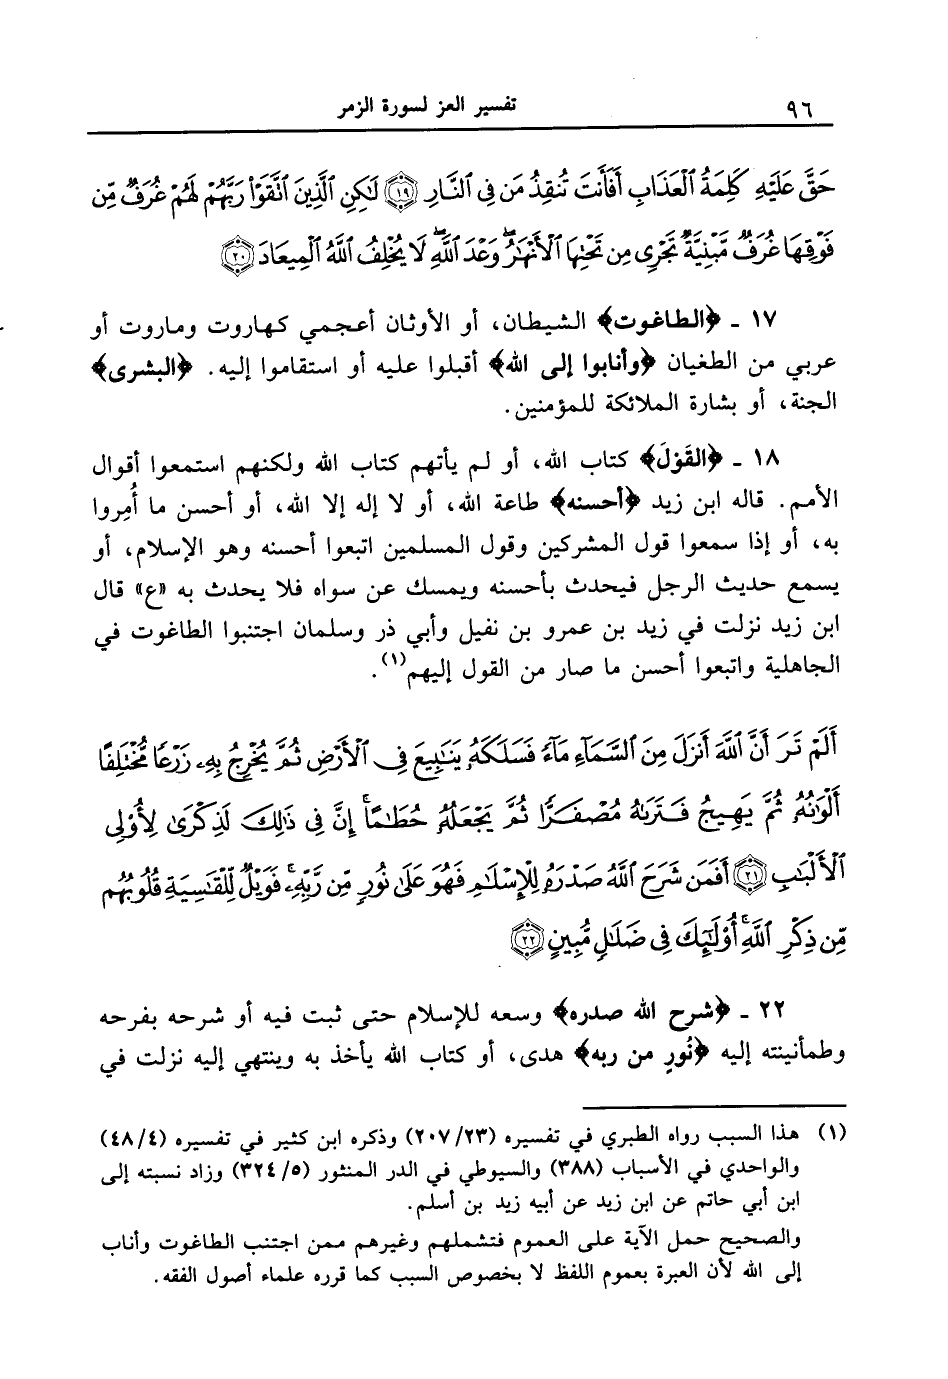 ٩٦
تفسير العز لسورة الزمر
حَقَّ عَلَيْهِ كَلِمَةُ ٱلْعَذَابِ أَفَأَنتَ تُنقِذُ مَن فِى ٱلنَّارِ ﴿١٩﴾ لَٰكِنِ ٱلَّذِينَ ٱتَّقَوْا۟ رَبَّهُمْ لَهُمْ غُرَفٌ مِّن
فَوْقِهَا غُرَفٌ مَّبْنِيَّةٌ تَجْرِى مِن تَحْتِهَا ٱلْأَنْهَٰرُ ۖ وَعْدَ ٱللَّهِ ۖ لَا يُخْلِفُ ٱللَّهُ ٱلْمِيعَادَ ﴿٢٠﴾
١٧ ـ ﴿الطاغوت﴾ الشيطان، أو الأوثان أعجمي كهاروت وماروت أو
عربي من الطغيان ﴿وأنابوا إلى الله﴾ أقبلوا عليه أو استقاموا إليه. ﴿البشرى﴾
الجنة، أو بشارة الملائكة للمؤمنين.
١٨ ـ ﴿القَوْلَ﴾ كتاب الله، أو لم يأتهم كتاب الله ولكنهم استمعوا أقوال
الأمم. قاله ابن زيد ﴿أحسنه﴾ طاعة الله، أو لا إله إلا الله، أو أحسن ما أُمِروا
به، أو إذا سمعوا قول المشركين وقول المسلمين اتبعوا أحسنه وهو الإسلام، أو
يسمع حديث الرجل فيحدث بأحسنه ويمسك عن سواه فلا يحدث به «ع» قال
ابن زيد نزلت في زيد بن عمرو بن نفيل وأبي ذر وسلمان اجتنبوا الطاغوت في
الجاهلية واتبعوا أحسن ما صار من القول إليهم(١).
أَلَمْ تَرَ أَنَّ ٱللَّهَ أَنزَلَ مِنَ ٱلسَّمَآءِ مَآءً فَسَلَكَهُۥ يَنَٰبِيعَ فِى ٱلْأَرْضِ ثُمَّ يُخْرِجُ بِهِۦ زَرْعًا مُّخْتَلِفًا
أَلْوَٰنُهُۥ ثُمَّ يَهِيجُ فَتَرَىٰهُ مُصْفَرًّا ثُمَّ يَجْعَلُهُۥ حُطَٰمًا ۚ إِنَّ فِى ذَٰلِكَ لَذِكْرَىٰ لِأُو۟لِى
ٱلْأَلْبَٰبِ ﴿٢١﴾ أَفَمَن شَرَحَ ٱللَّهُ صَدْرَهُۥ لِلْإِسْلَٰمِ فَهُوَ عَلَىٰ نُورٍ مِّن رَّبِّهِۦ ۚ فَوَيْلٌ لِّلْقَٰسِيَةِ قُلُوبُهُم
مِّن ذِكْرِ ٱللَّهِ ۚ أُو۟لَٰٓئِكَ فِى ضَلَٰلٍ مُّبِينٍ ﴿٢٢﴾
٢٢ ـ ﴿شرح الله صدره﴾ وسعه للإسلام حتى ثبت فيه أو شرحه بفرحه
وطمأنينته إليه ﴿نُورٍ من ربه﴾ هدى، أو كتاب الله يأخذ به وينتهي إليه نزلت في
(١) هذا السبب رواه الطبري في تفسيره (٢٠٧/٢٣) وذكره ابن كثير في تفسيره (٤٨/٤)
والواحدي في الأسباب (٣٨٨) والسيوطي في الدر المنثور (٣٢٤/٥) وزاد نسبته إلى
ابن أبي حاتم عن ابن زيد عن أبيه زيد بن أسلم.
والصحيح حمل الآية على العموم فتشملهم وغيرهم ممن اجتنب الطاغوت وأناب
إلى الله لأن العبرة بعموم اللفظ لا بخصوص السبب كما قرره علماء أصول الفقه.